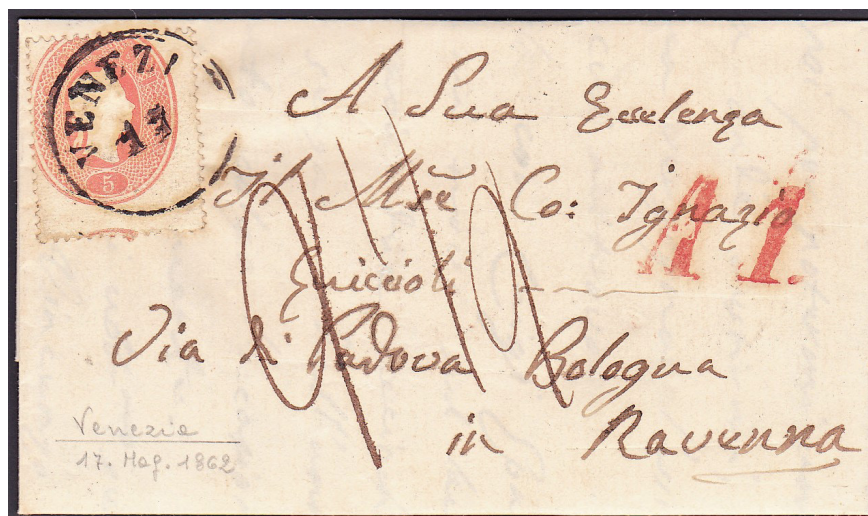 VENEZI
17
5
A Sua Eccelenza
Il Mse͂ Co: Ignazio
Guiccioli
A 1.
Via di Padova Bologna
in Ravenna
Venezia
17. Mag. 1862